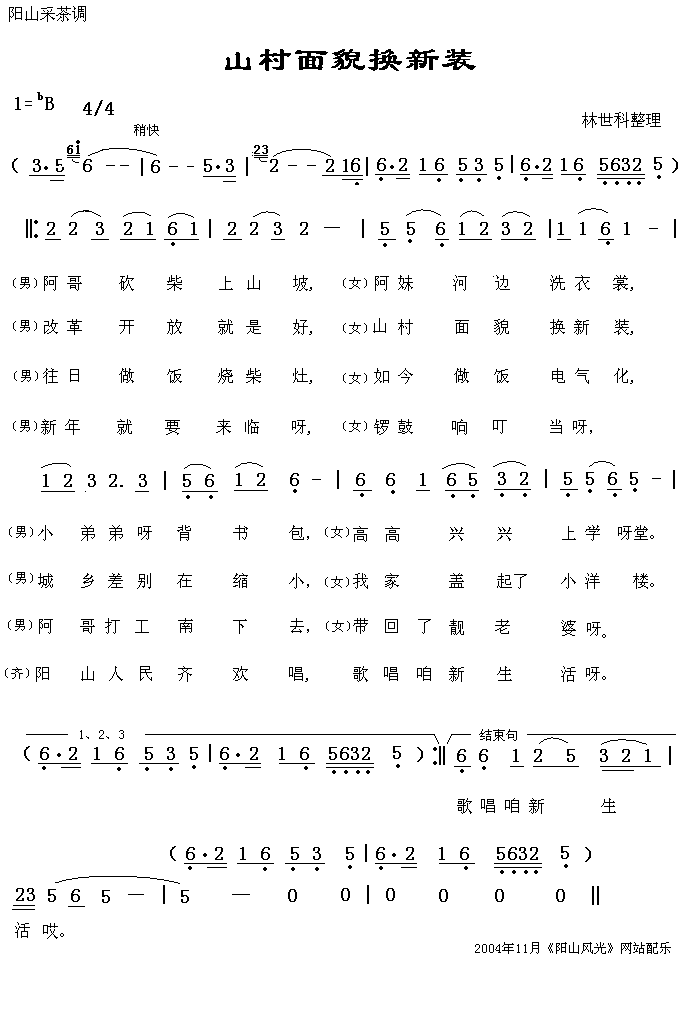 阳山采茶调
山村面貌换新装
1=ᵇB 4/4
林世科整理
稍快
( 3·5 6i 6 - - | 6 - - 5·3 | 23 2 - - 2 16 | 6·2 1 6 5 3 5 | 6·2 1 6 5632 5 )
‖: 2 2 3 2 1 6 1 | 2 2 3 2 — | 5 5 6 1 2 3 2 | 1 1 6 1 - |
(男)阿哥 砍柴上山坡, (女)阿妹河边洗衣裳,
(男)改革开放就是好, (女)山村面貌换新装,
(男)往日做饭烧柴灶, (女)如今做饭电气化,
(男)新年就要来临呀, (女)锣鼓响叮当呀,
1 2 3 2. 3 | 5 6 1 2 6 - | 6 6 1 6 5 3 2 | 5 5 6 5 - |
(男)小弟弟呀背书包, (女)高高兴兴上学呀堂。
(男)城乡差别在缩小, (女)我家盖起了小洋楼。
(男)阿哥打工南下去, (女)带回了靓老婆呀。
(齐)阳山人民齐欢唱, 歌唱咱新生活呀。
1、2、3 结束句
( 6·2 1 6 5 3 5 | 6·2 1 6 5632 5 ) :‖ 6 6 1 2 5 3 2 1 |
歌唱咱新生
( 6·2 1 6 5 3 5 | 6·2 1 6 5632 5 )
23 5 6 5 — | 5 — 0 0 | 0 0 0 0 ‖
活哎。
2004年11月《阳山风光》网站配乐